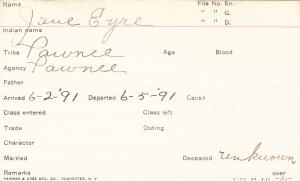 Name Jane Eyre File No. En.
" " G.
" " D.
Indian name
Tribe Pawnee Age Blood
Agency Pawnee
Father
Arrived 6-2-'91 Departed 6-5-'91 Cause
Class entered Class left
Trade Outing
Character
Married Deceased unknown
Remarks over